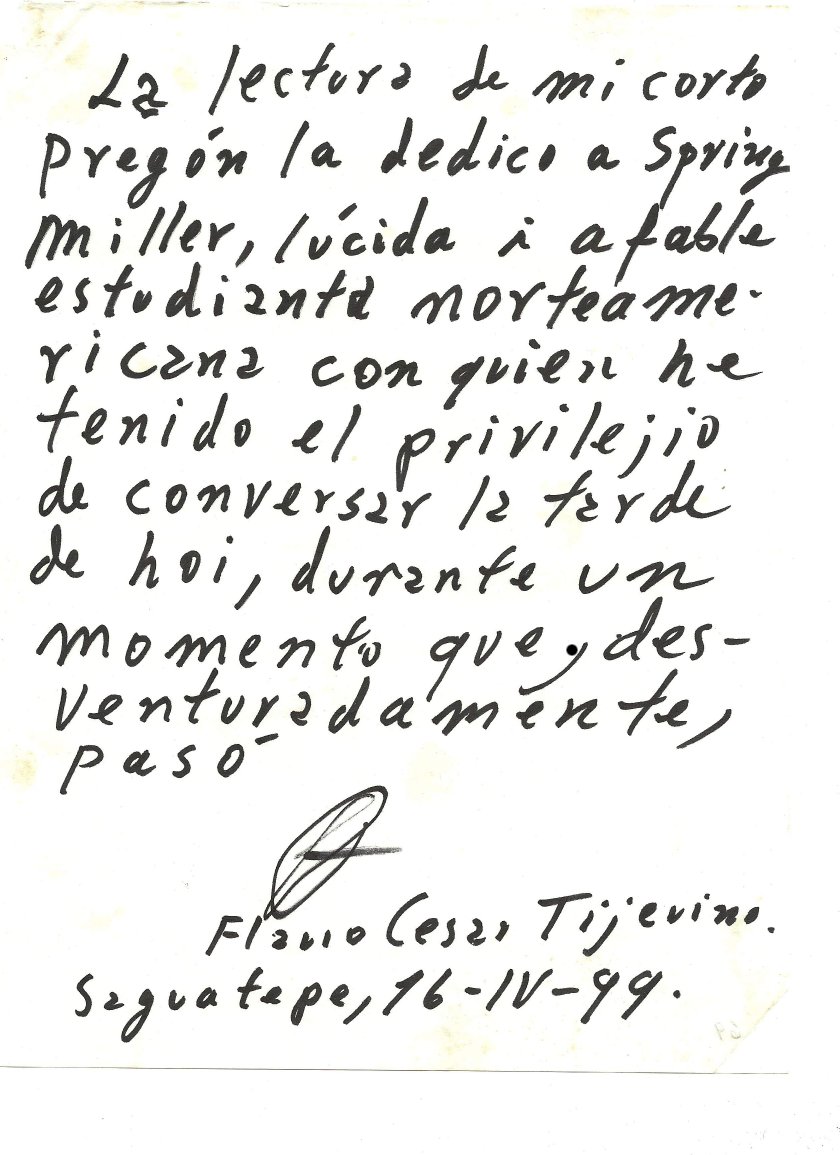 La lectura de mi corto
pregón la dedico a Spring
Miller, lúcida i afable
estudianta norteame-
ricana con quien he
tenido el privilejio
de conversar la tarde
de hoi, durante un
momento que, des-
venturadamente,
pasó
Flavio Cesar Tijerino.
Saguatepe, 16-IV-99.